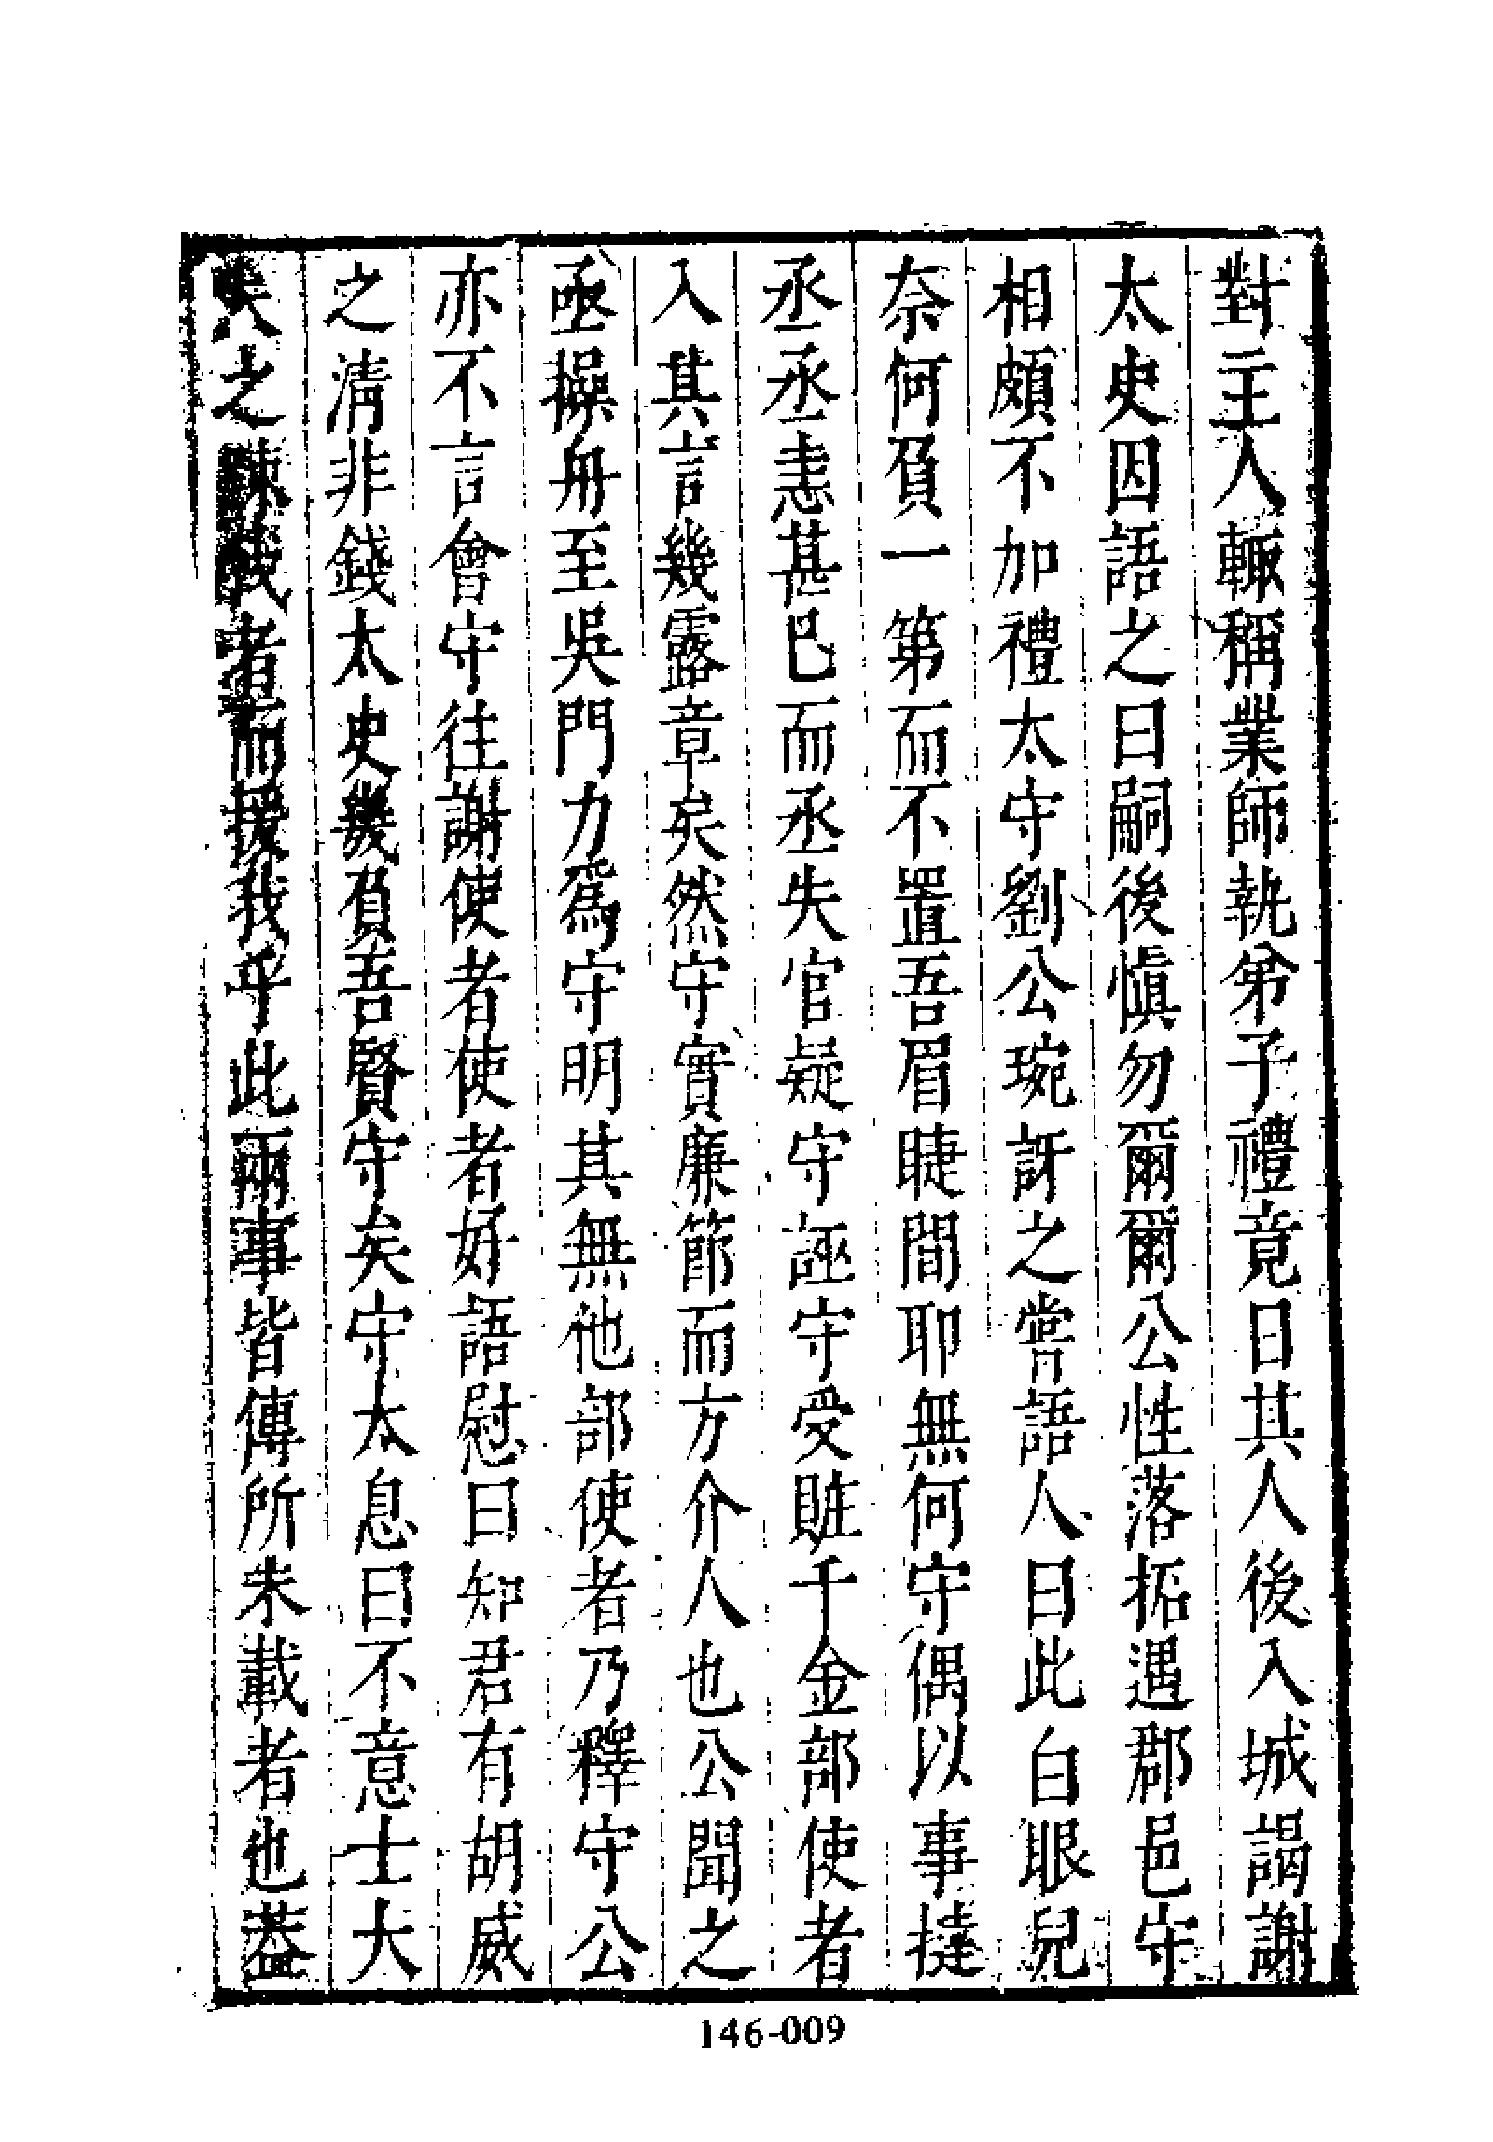 對主人輙稱業師執弟子禮竟日其人後入城謁謝
太史因語之曰嗣後愼勿爾爾公性落拓遇郡邑守
相頗不加禮太守劉公琬訝之嘗語人曰此白眼兒
奈何負一第而不置吾眉睫間耶無何守偶以事撻
丞丞恚甚已而丞失官疑守誣守受賍千金部使者
入其言幾露章矣然守實廉節而方介人也公聞之
亟操舟至吳門力爲守明其無他部使者乃釋守公
亦不言會守往謝使者使者好語慰曰知君有胡威
之清非錢太史幾負吾賢守矣守太息曰不意士大
夫之踈我者而援我乎此兩事皆傳所未載者也葢
146-009